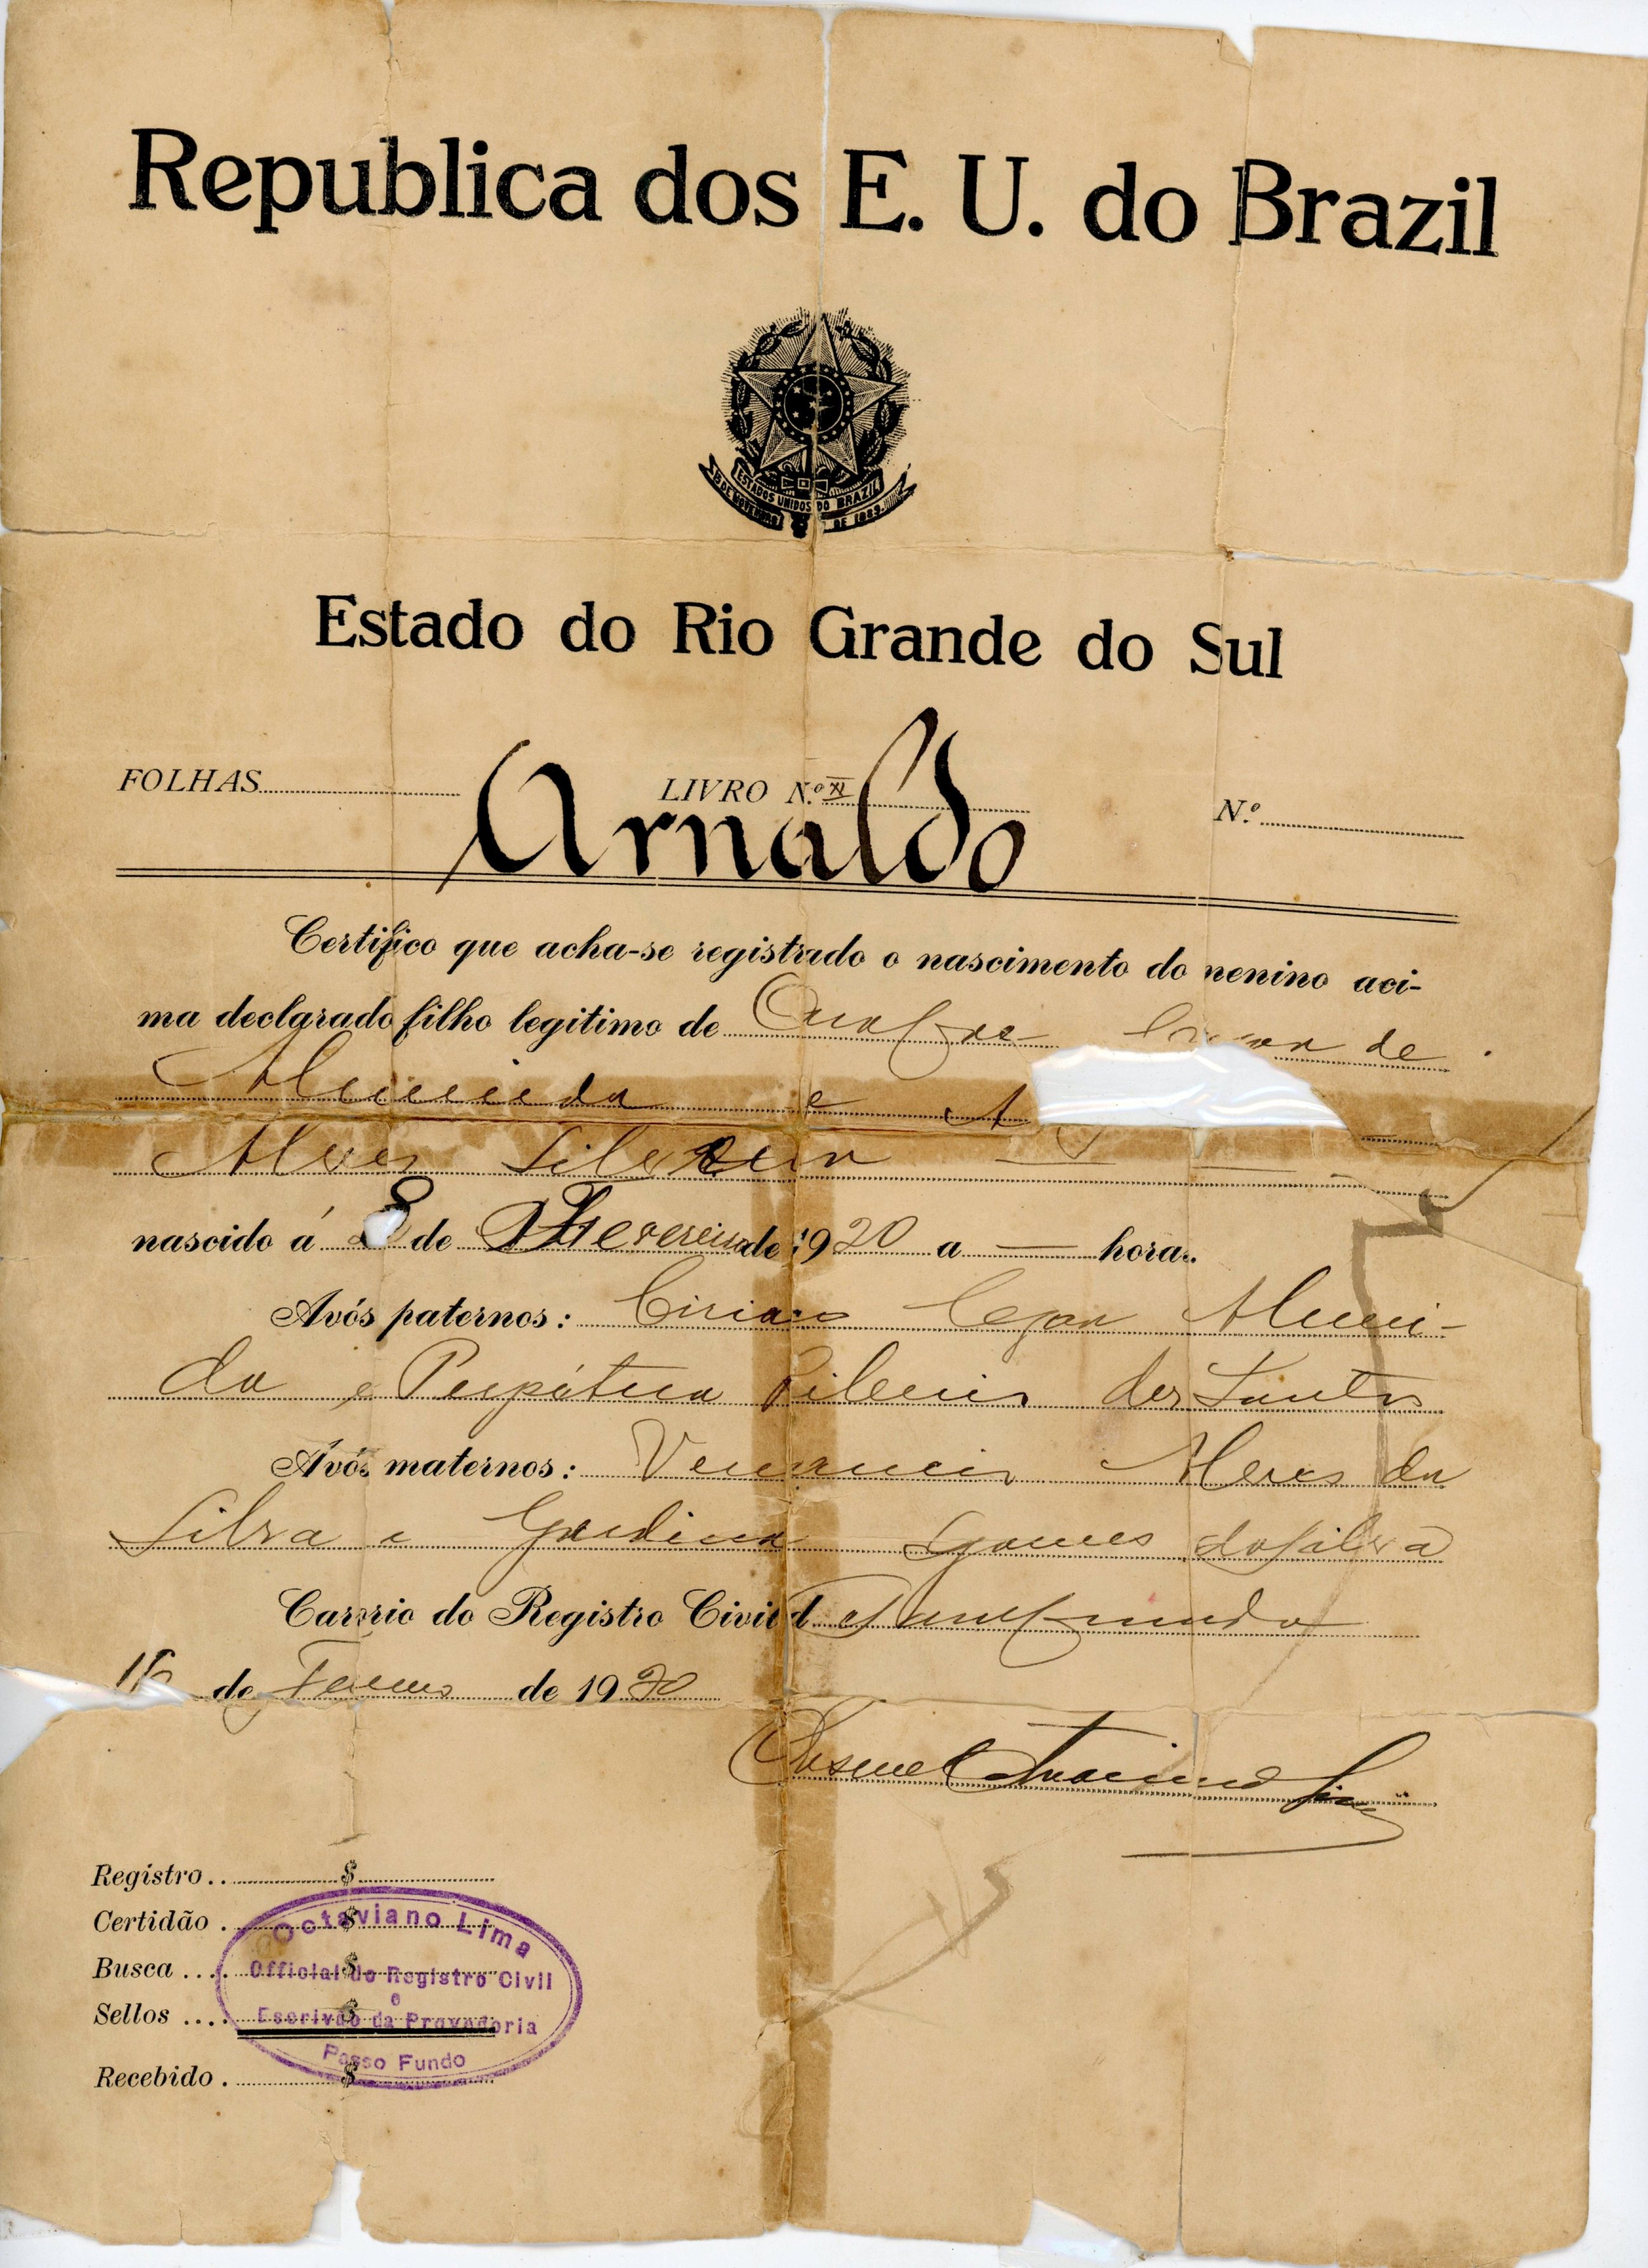 Republica dos E. U. do Brazil
ESTADOS UNIDOS DO BRAZIL
15 DE NOVEMBRO DE 1889.
Estado do Rio Grande do Sul
FOLHAS LIVRO N.º XI N.º
Arnaldo
Certifico que acha-se registrado o nascimento do nenino aci-
ma declarado filho legitimo de de
Almeida e
Alves Silveira
nascido á 8 de Fevereiro de 1920 a — hora..
Avós paternos: Almei-
da e Ribeiro dos Santos
Avós maternos: Venancio Alves da
Silva e Gomes da Silva
Carorio do Registro Civil d Passo Fundo
16 de de 1920
Registro.. $
Certidão . $
Busca .... $
Sellos .... $
Recebido . $
Octaviano Lima
Official do Registro Civil
e
Escrivão da Provedoria
Passo Fundo